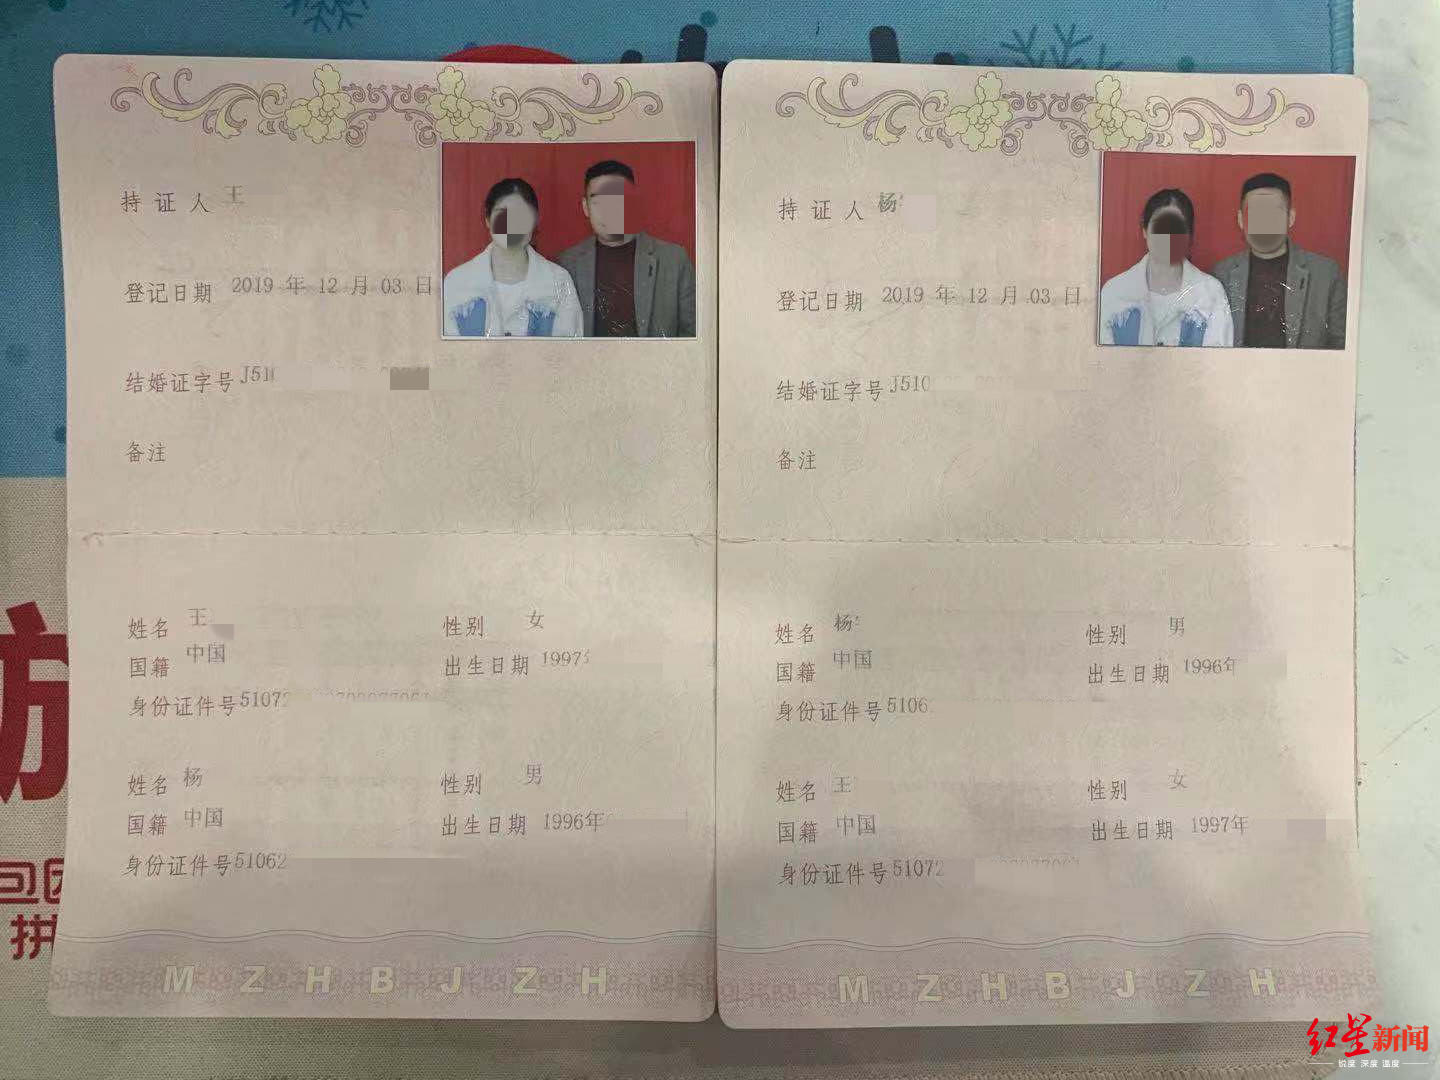 持证人 王
登记日期 2019 年 12 月 03 日
结婚证字号 J510
备注
姓名 王 性别 女
国籍 中国 出生日期 1997年
身份证件号 51072
姓名 杨 性别 男
国籍 中国 出生日期 1996年
身份证件号 51062
M Z H B J Z H
持证人 杨
登记日期 2019 年 12 月 03 日
结婚证字号 J510
备注
姓名 杨 性别 男
国籍 中国 出生日期 1996年
身份证件号 5106
姓名 王 性别 女
国籍 中国 出生日期 1997年
身份证件号 51072
M Z H B J Z H
红星新闻
锐度 深度 温度